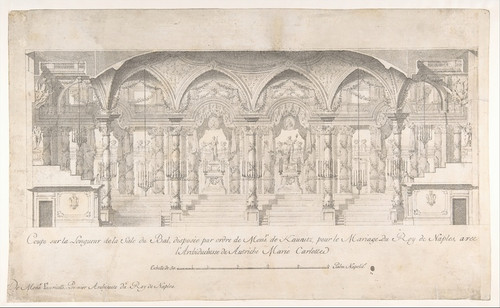 Coupe sur la Longueur de la Sale du Bal, disposée par ordre de Monsr. de Kaunitz, pour le Mariage du Roy de Naples avec
l'Archiduchesse de Autriche Marie Carlotte
Echele de
Palmi Napolit.
de Monsr. Premier Architecte du Roy de Naples